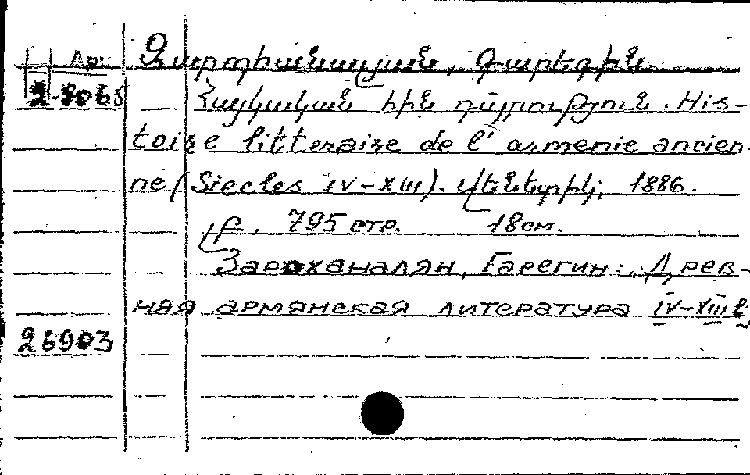 Др. Զարտիանալյան, Գարեգին
2-8065 Հայկական հին դպրություն. His-
toire litteraire de l'armenie ancien-
ne (Siecles IV-XIII). Վենետիկ, 1886.
795 стр. 18 см.
Зарханалян, Гарегин: Древ-
ная армянская литература IV-XIII в.
26903